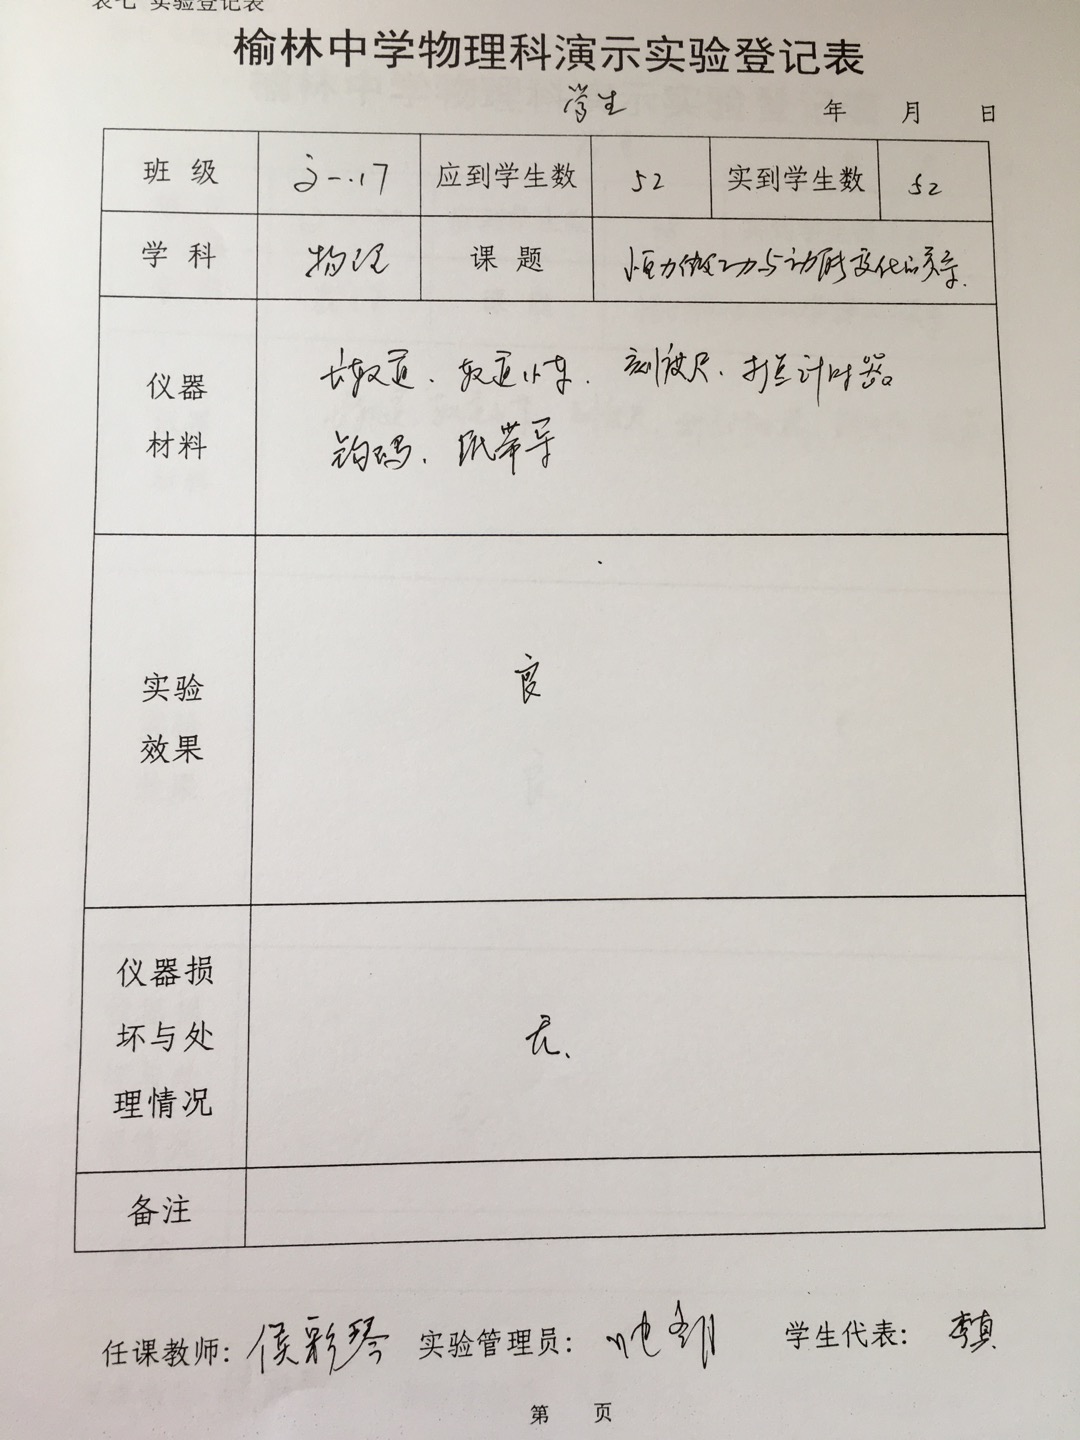 表七 实验登记表
榆林中学物理科演示实验登记表
学生
年 月 日
班 级 高一.17 应到学生数 52 实到学生数 52
学 科 物理 课 题 恒力做功与动能变化的关系.
仪器
材料
长轨道、轨道小车、刻度尺、打点计时器
钩码、纸带等
实验
效果
良
仪器损
坏与处
理情况
无、
备注
任课教师: 侯彩琴 实验管理员: 学生代表: 李真
第 页